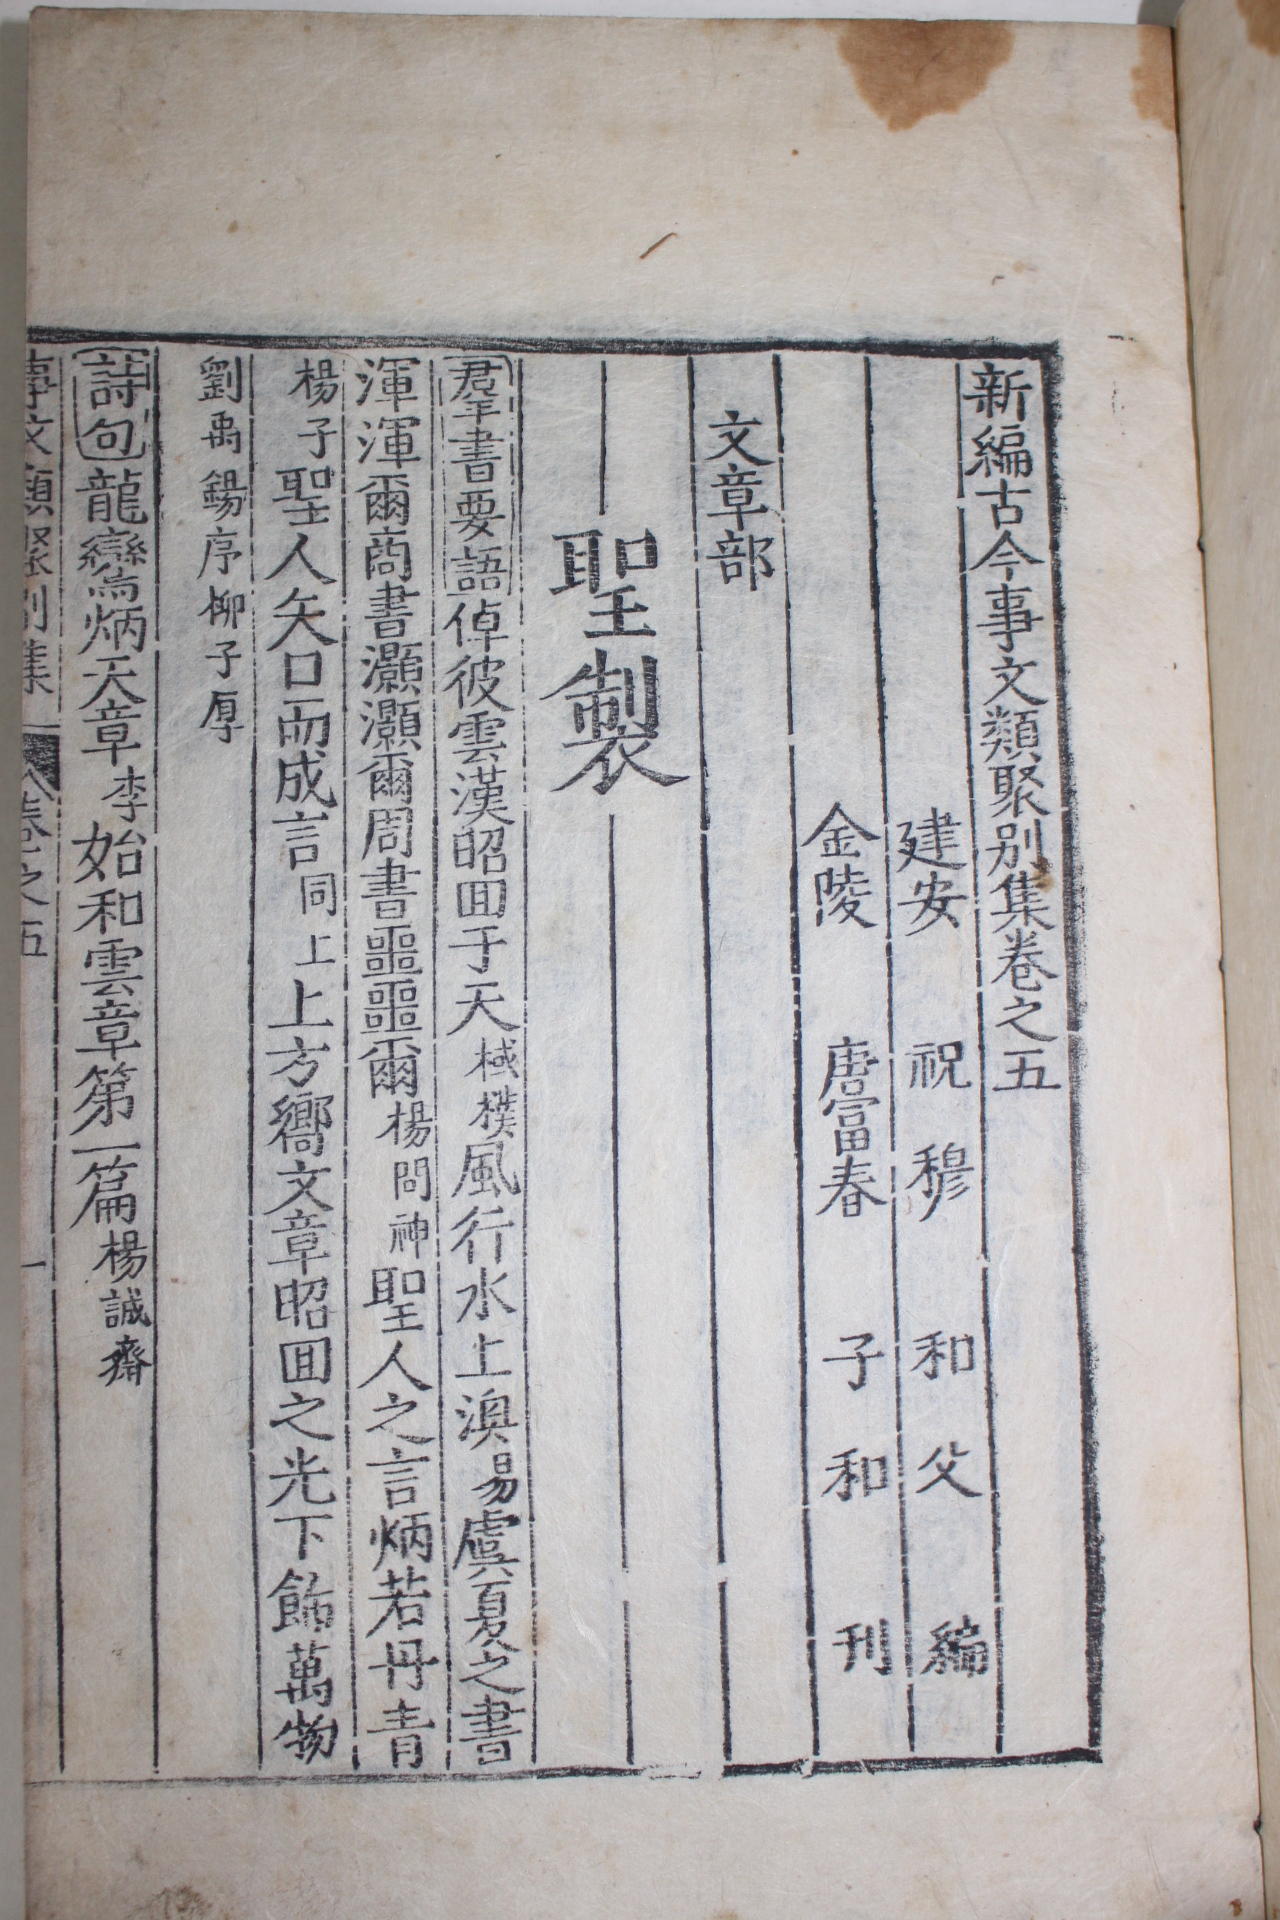 新編古今事文類聚别集卷之五
建安 祝穆 和父 編
金陵 唐富春 子和 刊
文章部
聖製
羣書要語倬彼雲漢昭囬于天棫樸風行水上渙易虞夏之書
渾渾爾商書灝灝爾周書噩噩爾楊問神聖人之言炳若丹青
楊子聖人矢口而成言同上上方嚮文章昭囬之光下飾萬物
劉禹錫序柳子厚
詩句龍鸞炳天章李始和雲章第一篇楊誠齋
事文類聚别集 卷之五 一